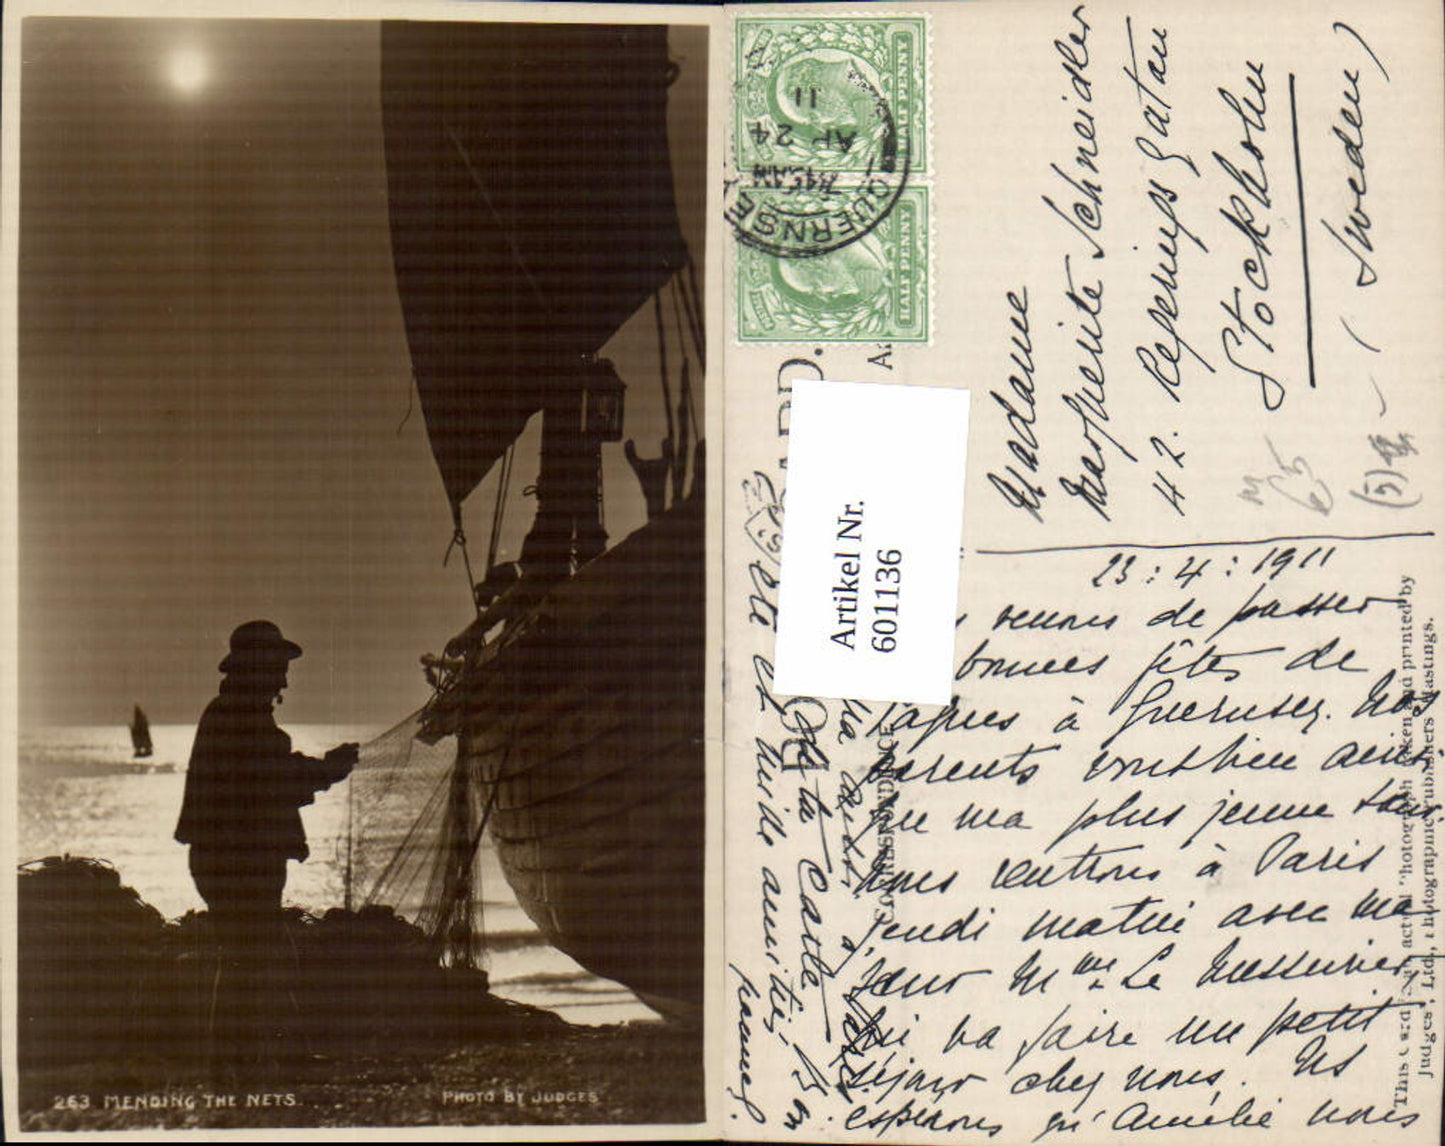 263 MENDING THE NETS.
PHOTO BY JUDGES
HALF PENNY
HALF PENNY
GUERNSE
7.45AM
AP 24
11
Artikel Nr.
601136
Madame
Marguerite Schneidler
42. Regerings Gatan
Stockholm
(Sweden)
65
(5)
23:4:1911
venons de passer
bonnes fêtes de
Pâques à Guernsey. Nos
parents vont bien ainsi
que ma plus jeune sœur
nous rentrons à Paris
Jeudi matin avec ma
sœur Mme Le Messurier
qui va faire un petit
séjour chez nous. Ns
espérons qu'Amélie nous
ta carte
et mide amitiés
CORRESPONDENCE
This Card is an actual Photograph taken and printed by
Judges', Ltd., Photographic Publishers Hastings.